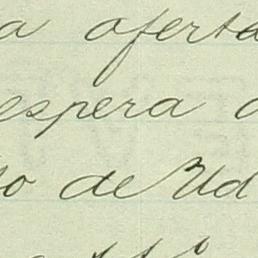 a oferta
espera a
to de Ud